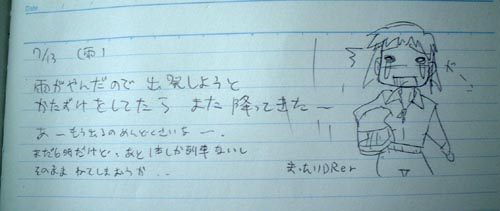 Date
7/13 (雨)
雨がやんだので 出発しようと
かたづけをしてたら また降ってきたー
あーもう出るのめんどくさいなー.
まだ6時だけど、あと1本しか列車ないし
そのまま ねてしまおうか..
DRer